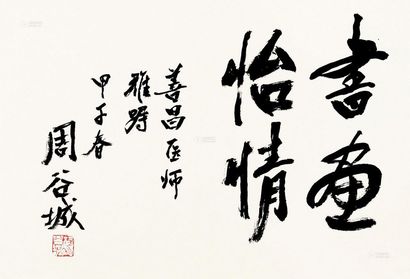 書画
怡情
善昌医师
雅嘱
甲子春
周谷城